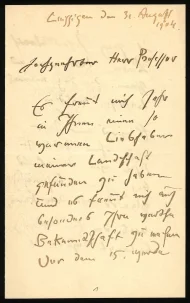 den 31. August
1904.
Hochgeehrter Herr Professor
Es freut mich sehr
in Ihnen einen so
warmen Liebhaber
meiner Landschaft
gefunden zu haben
und es freut mich auch
besonders Ihre werthe
Bekanntschaft zu machen
Vor dem 15. werde